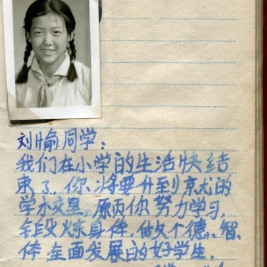 刘愉同学：
我们在小学的生活快结
束了。你、将要升到
学 愿你努力学习，
锻炼身体，做个德、智、
体全面发展的好学生。